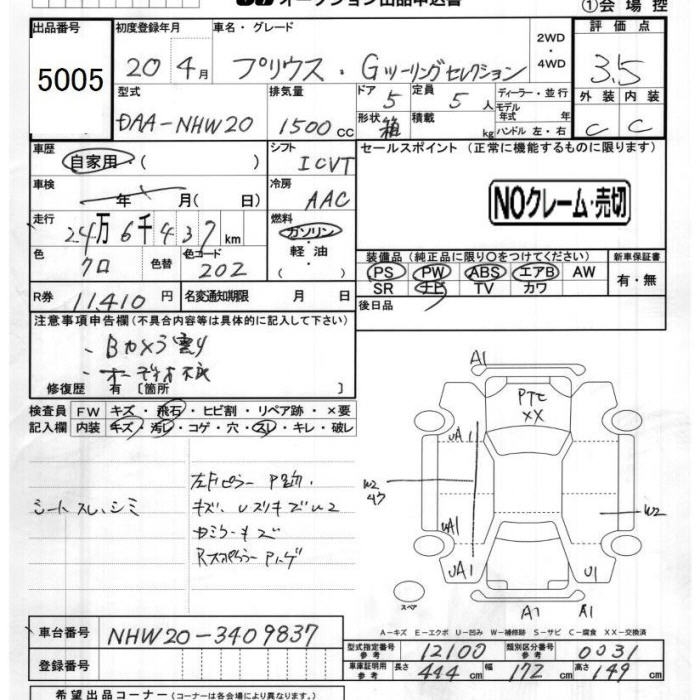 オークション出品申込書
①会場控
出品番号 5005
初度登録年月 20年4月
車名・グレード プリウス・Gツーリングセレクション
2WD・4WD
評価点 3.5
外装 C 内装 C
型式 DAA-NHW20
排気量 1500cc
ドア 5 定員 5人
形状 箱 積載 kg
ディーラー・並行
モデル年式 年
ハンドル 左・右
車歴 自家用・( )
シフト ICVT
セールスポイント (正常に機能するものに限ります)
NOクレーム・売切
車検 年 月( 日)
冷房 AAC
走行 24万6千437km
燃料 ガソリン・軽油・( )
色 クロ 色替 色コード 202
装備品(純正品に限り〇をつけてください)
PS PW ABS エアB AW
SR ナビ TV カワ
新車保証書 有・無
R券 11,410円
名変通知期限 月 日
後日品
注意事項申告欄(不具合内容等は具体的に記入して下さい)
・Bカメラ曇り
・オーディオ不良
修復歴 有 [箇所 ]
検査員記入欄
FW キズ・飛石・ヒビ割・リペア跡・×要
内装 キズ・汚レ・コゲ・穴・スレ・キレ・破レ
シートスレ、シミ
左Fピラー
キズ、
Rスポイラー
A1
PTC
XX
UA1
W2
UA1
W2
UA1
U1
スペア
A1
A1
A-キズ E-エクボ U-凹み W-補修跡 S-サビ C-腐食 XX-交換済
車台番号 NHW20-3409837
型式指定番号 参考 12100 類別区分番号 参考 0031
登録番号
車庫証明用 参考 長さ 444cm 幅 172cm 高さ 149cm
希望出品コーナー(コーナーは各会場により異なります)